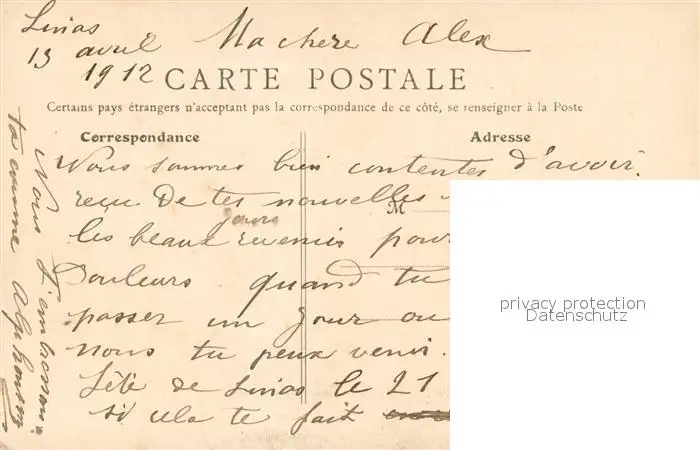 Linas
13 avril
1912
Ma chere Alex
CARTE POSTALE
Certains pays étrangers n'acceptant pas la correspondance de ce côté, se renseigner à la Poste
Correspondance
Adresse
Nous sommes bien contentes d'avoir
reçu De tes nouvelles
M
jours
les beaux revenus pour
Douleurs quand tu
passer un jour ou
nous tu peux venir.
Fête de Linas le 21
si cela te fait
Nous t'embrassons
ta cousine Alphonsine
privacy protection
Datenschutz